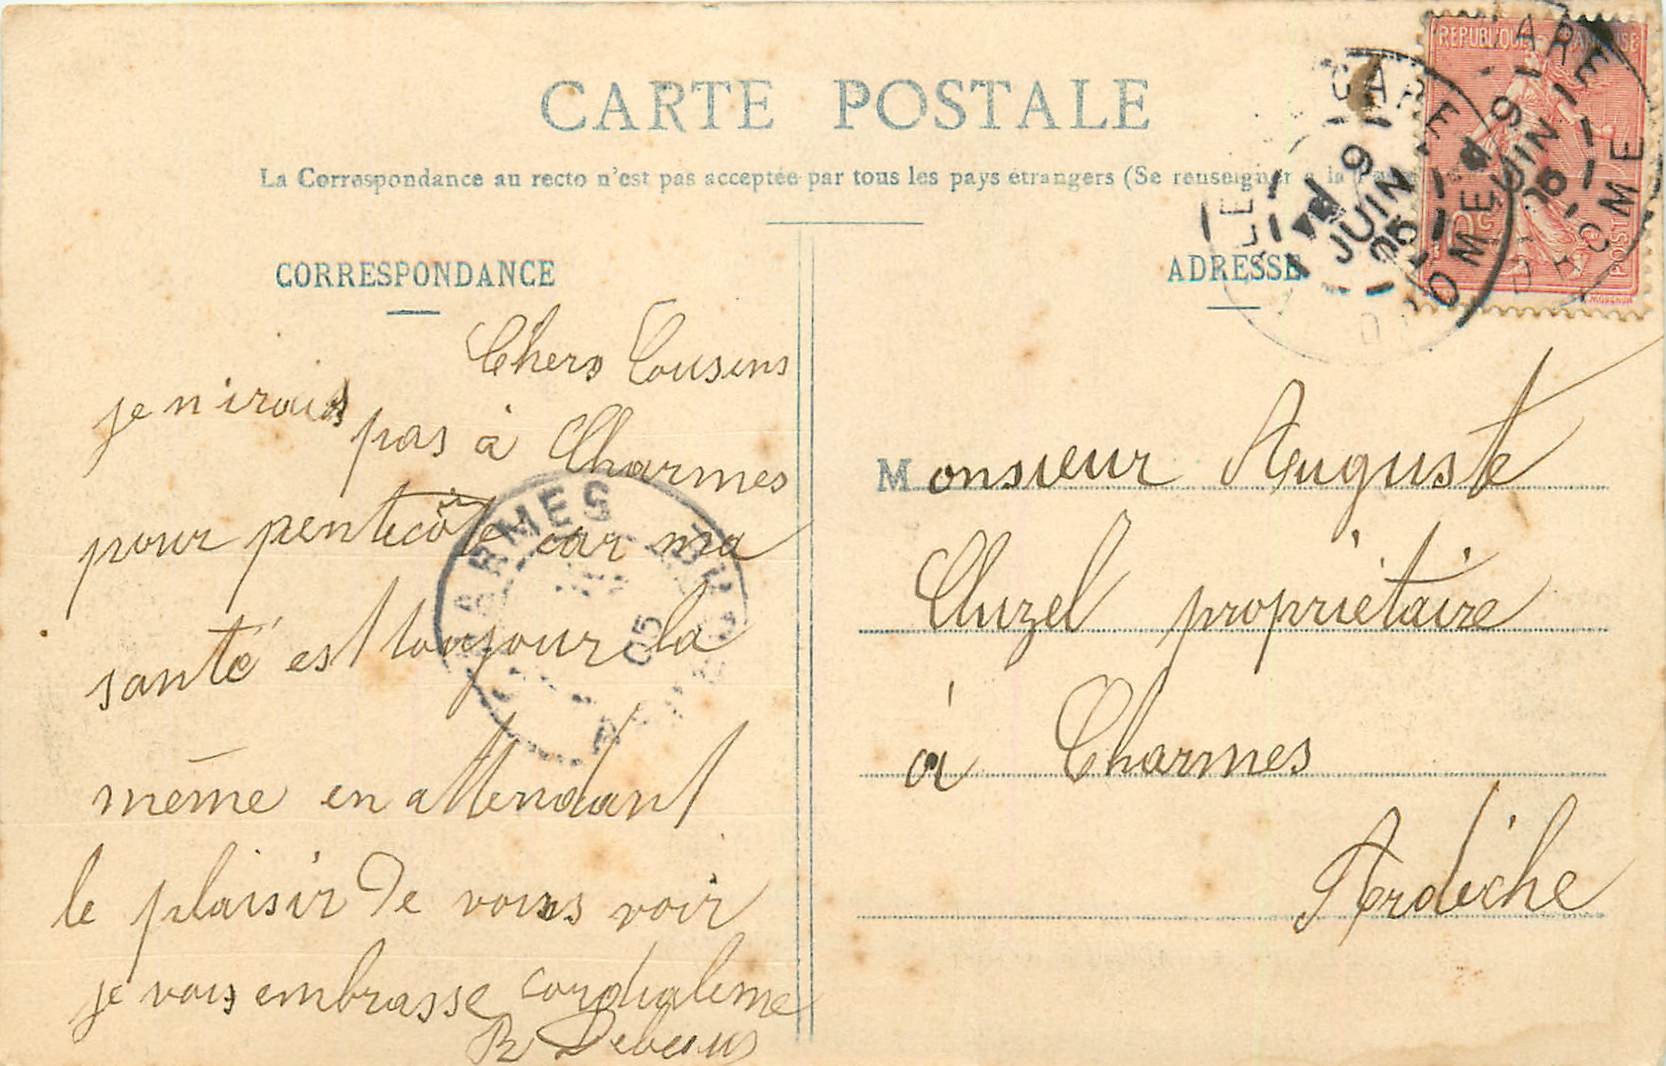 CARTE POSTALE
La Correspondance au recto n'est pas acceptée par tous les pays étrangers (Se renseigner à la
CORRESPONDANCE
Chers Cousins
je nirais pas à Charmes
pour penticôte car ma
santé est toujour la
même en attendant
le plaisir de vous voir
je vous embrasse cordialeme
ADRESSE
Monsieur Auguste
Cluzel propriétaire
à Charmes
Ardèche
REPUBLIQUE FRANÇAISE
POSTES
GARE
9
JUIN
05
DROME
GARE
9
JUIN
05
DROME
CHARMES
05